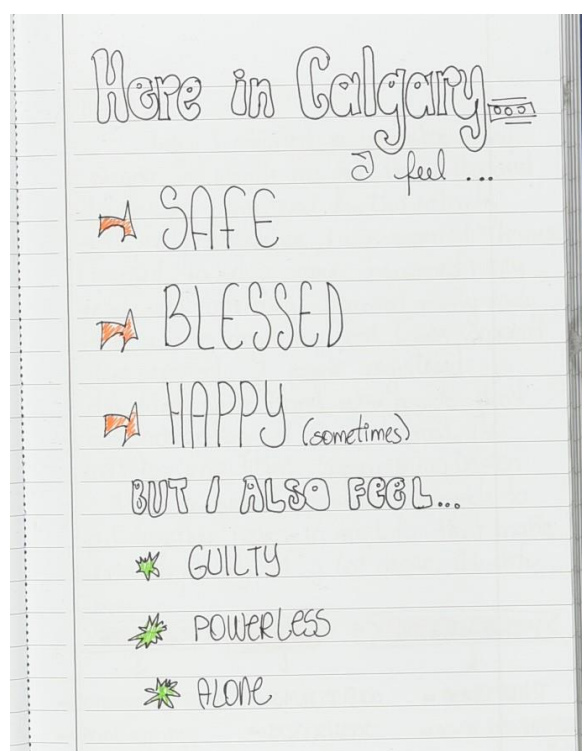 Here in Calgary...
I feel ...
SAFE
BLESSED
HAPPY (sometimes)
BUT I ALSO FEEL...
GUILTY
POWERLESS
ALONE